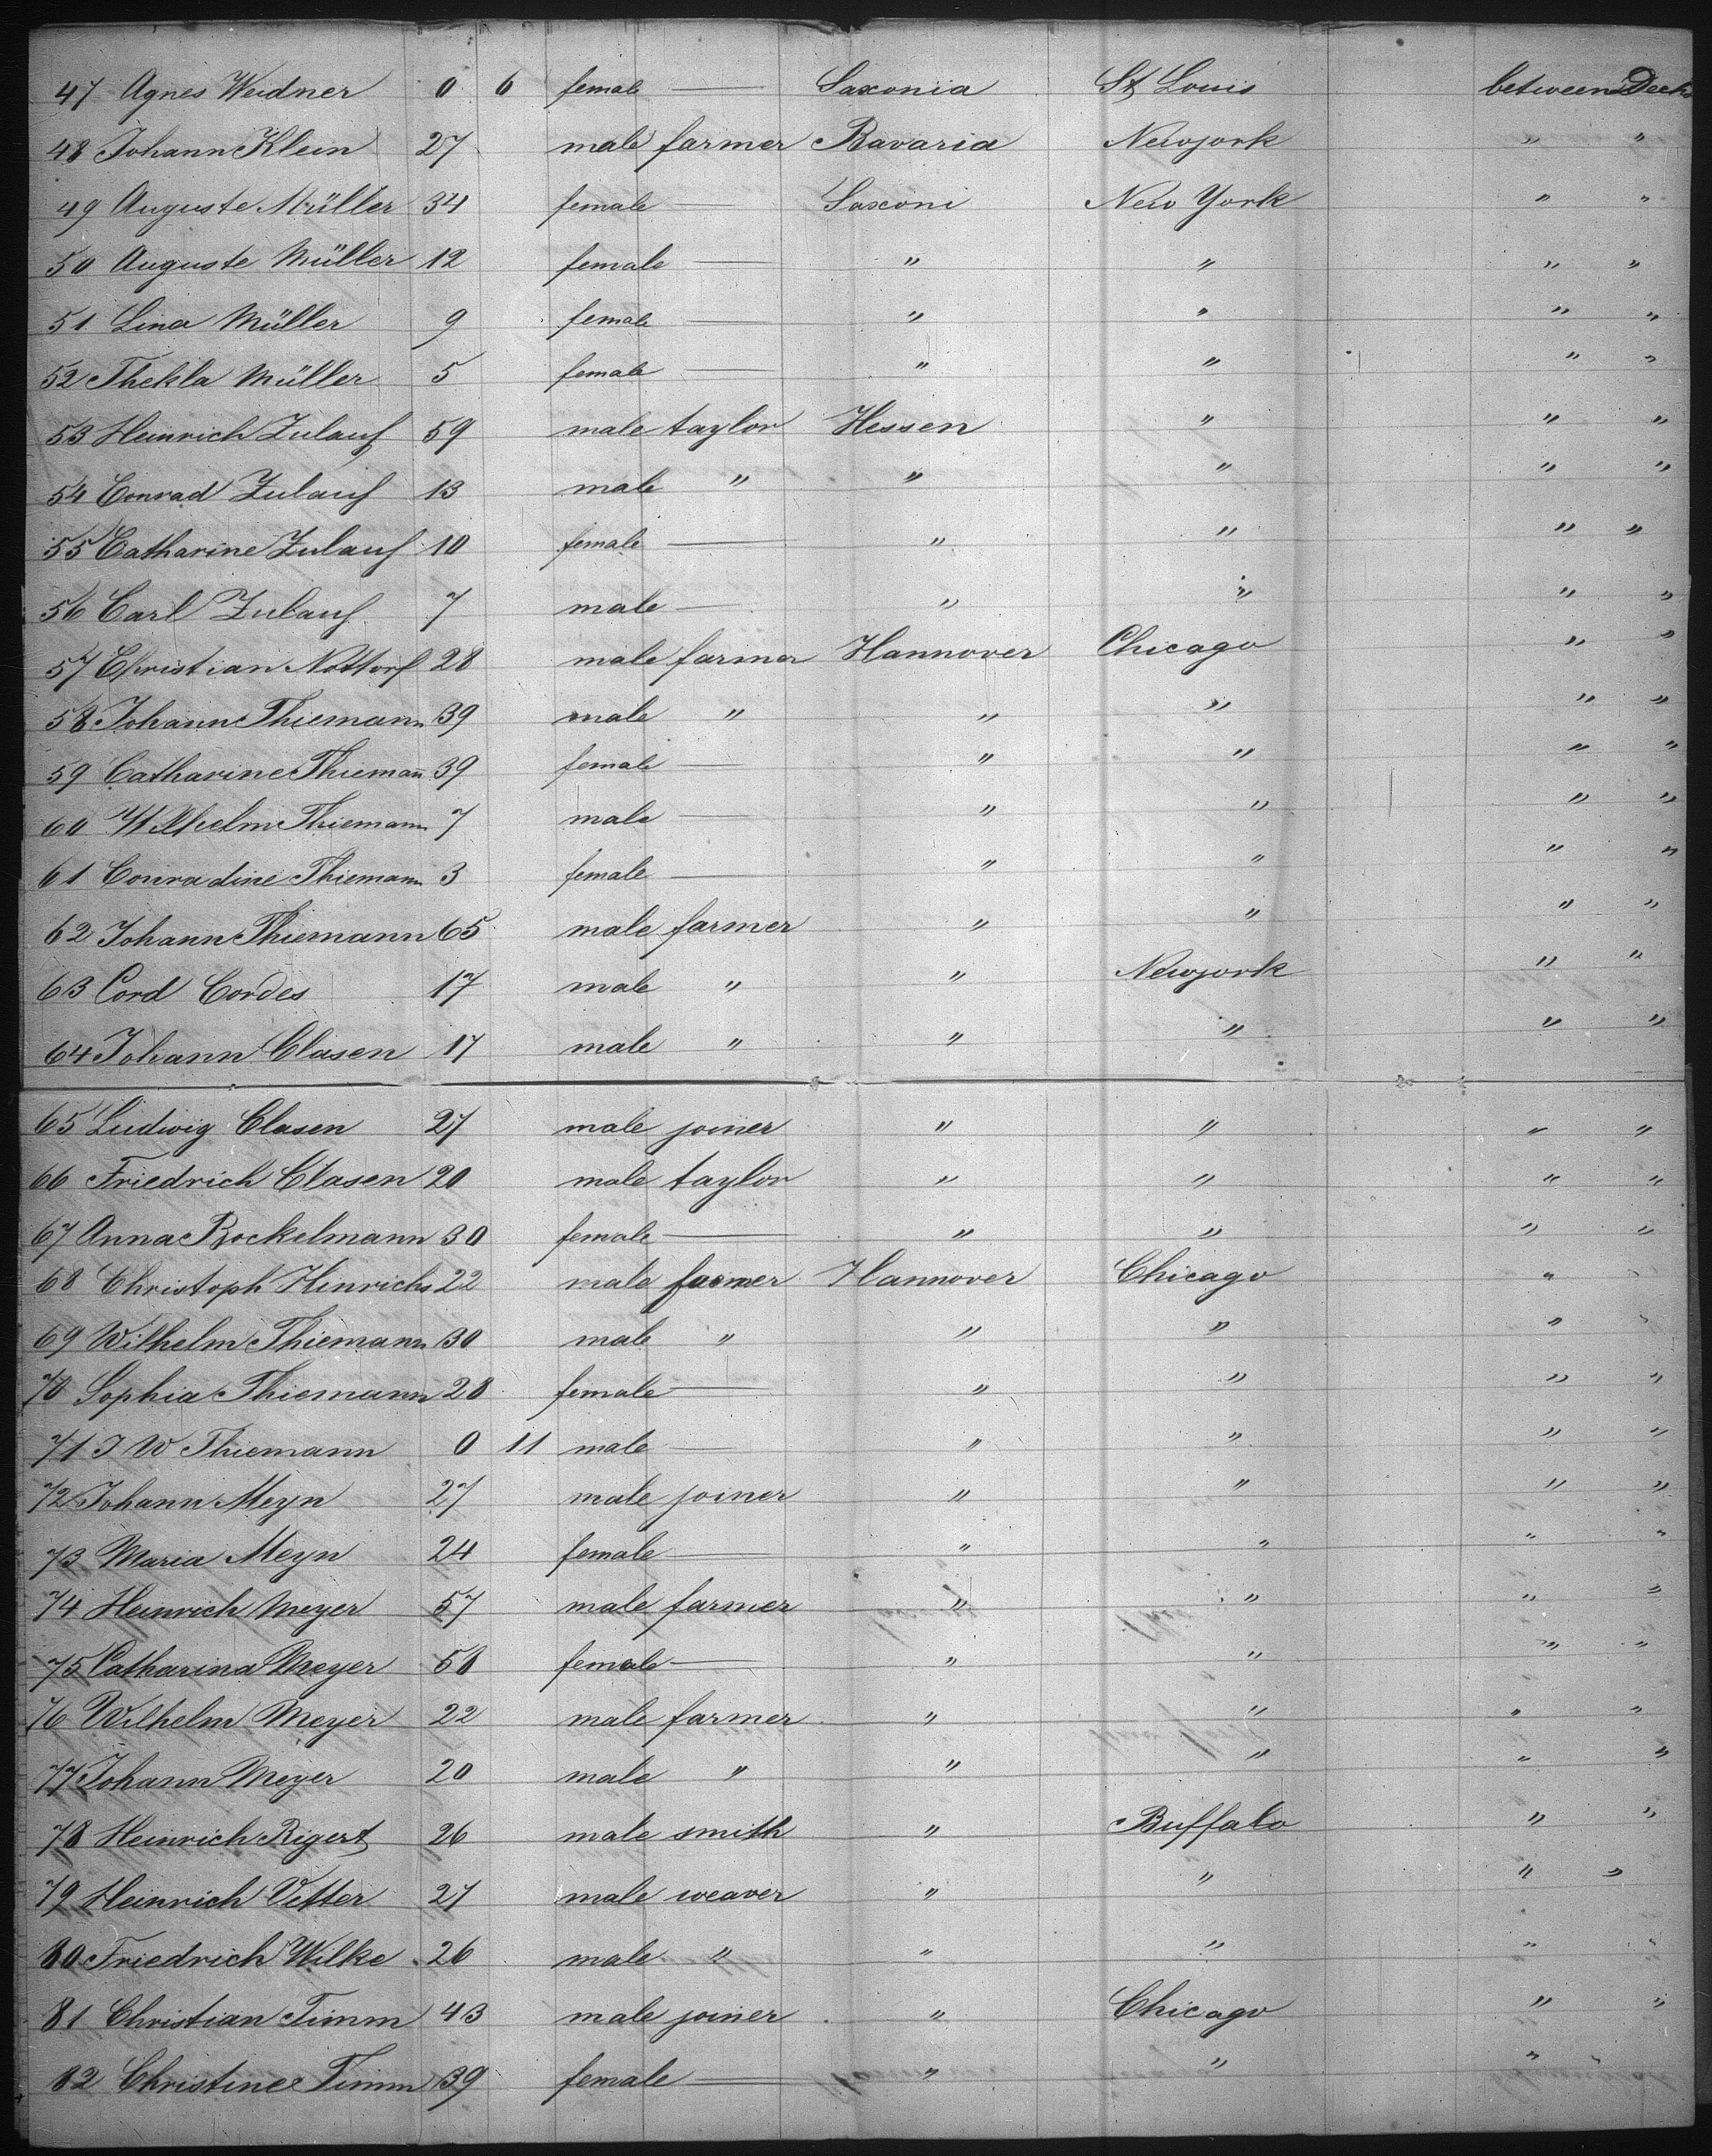 47 Agnes Weidner 0 6 female — Saxonia St Louis between Deck
48 Johann Klein 27 male farmer Bavaria Newjork " "
49 Auguste Müller 34 female — Saxoni New York " "
50 Auguste Müller 12 female — " " " "
51 Lina Müller 9 female — " " " "
52 Thekla Müller 5 female — " " " "
53 Heinrich Zulauf 59 male taylor Hessen " " "
54 Conrad Zulauf 13 male " " " " "
55 Catharine Zulauf 10 female — " " " "
56 Carl Zulauf 7 male — " " " "
57 Christian Nottorf 28 male farmer Hannover Chicago " "
58 Johann Thiemann 39 male " " " " "
59 Catharine Thieman̄ 39 female — " " " "
60 Wilhelm Thiemann 7 male — " " " "
61 Conradine Thiemann 3 female — " " " "
62 Johann Thiemann 65 male farmer " " " "
63 Cord Cordes 17 male " " Newjork " "
64 Johann Clasen 17 male " " " " "
65 Ludwig Clasen 27 male joiner " " " "
66 Friedrich Clasen 20 male taylor " " " "
67 Anna Bockelmann 30 female — " " " "
68 Christoph Hinrichs 22 male farmer Hannover Chicago " "
69 Wilhelm Thiemann 30 male " " " " "
70 Sophia Thiemann 28 female — " " " "
71 J W Thiemann 0 11 male " " " "
72 Johann Meyn 27 male joiner " " " "
73 Maria Meyn 24 female — " " " "
74 Heinrich Meyer 57 male farmer " " " "
75 Catharina Meyer 58 female — " " " "
76 Wilhelm Meyer 22 male farmer " " " "
77 Johann Meyer 20 male " " " " "
78 Heinrich Rigert 26 male smith " Buffalo " "
79 Heinrich Vetter 27 male weaver " " " "
80 Friedrich Wilke 26 male " " " " "
81 Christian Timm 43 male joiner " Chicago " "
82 Christine Timm 39 female — " " " "